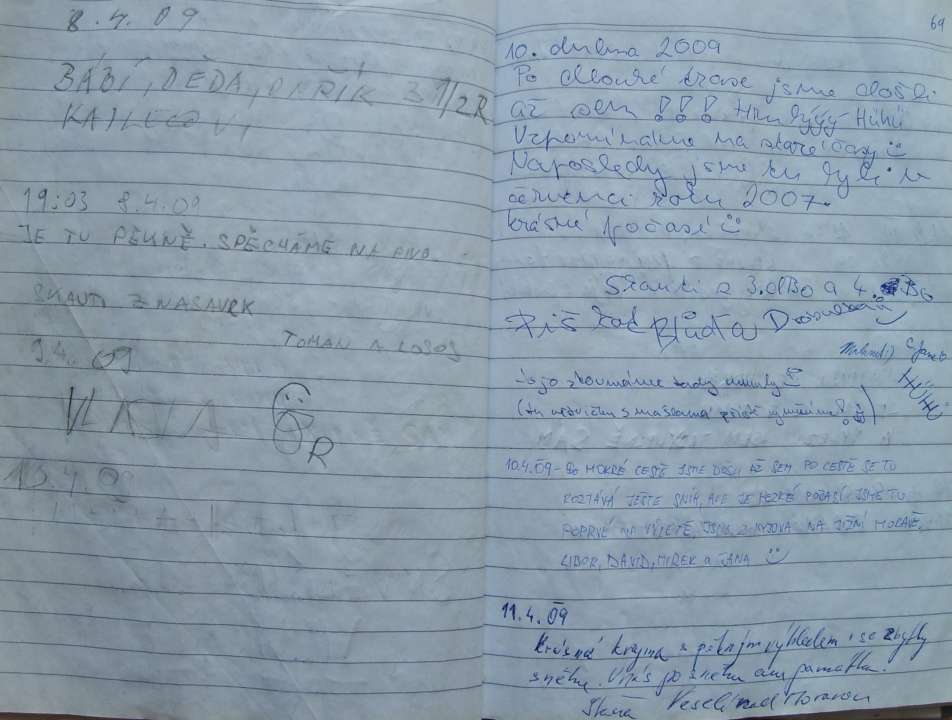 8.4.09
BÁBÍ, DĚDA, 3 1/2 R
19:03 8.4.09
JE TU PĚKNĚ. SPĚCHÁME NA PIVO.
SKAUTI Z NASAVRK
TOMAN A LOSOS
9.4.09
VLASTA
R
13.4.09
64
10. dubna 2009
Po dlouhé trase jsme došli
až sem !!! Hůhů
Vzpomínáme na staré časy
Naposledy jsme tu byli v
červenci roku 2007.
krásné počasí
Skauti z 3. a 4.
Píš Bluďa
Jo jo zkoumáme tady
10.4.09 - PO MOKRÉ CESTĚ JSME DOŠLI AŽ SEM PO CESTĚ SE TU
ROZTÁVÁ JEŠTĚ SNÍH, ALE JE HEZKÉ POČASÍ JSME TU
POPRVÉ NA VÝLETĚ JSME Z KYJOVA NA JIŽNÍ MORAVĚ,
LIBOR, DAVID, MIREK a JANA
11.4.09
Krásná krajina s pěkným výhledem i se zbytky
sněhu. U nás po sněhu ani památka.
Veselí nad Moravou